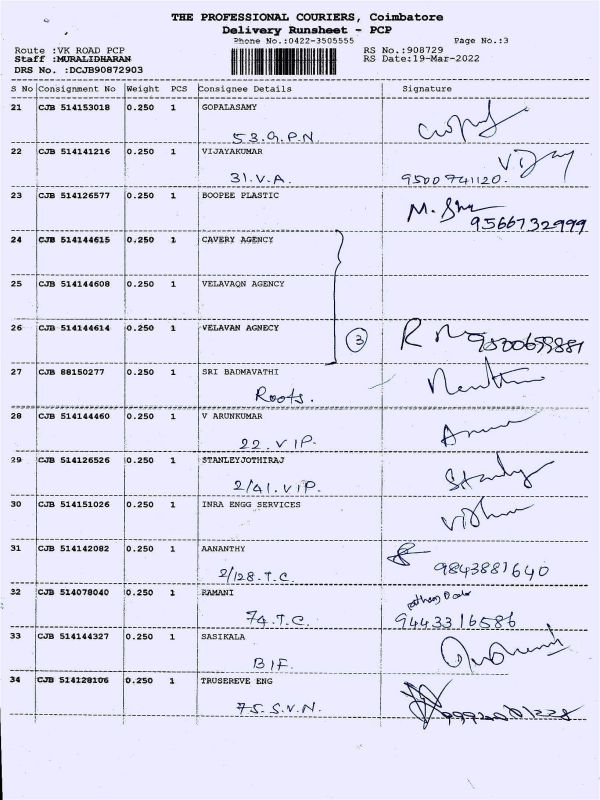 THE PROFESSIONAL COURIERS, Coimbatore
Delivery Runsheet - PCP
Phone No.:0422-3505555 Page No.:3
Route :VK ROAD PCP RS No.:908729
Staff :MURALIDHARAN RS Date:19-Mar-2022
DRS No. :DCJB90872903
S No Consignment No Weight PCS Consignee Details Signature
21 CJB 514153018 0.250 1 GOPALASAMY
53.G.P.N.
22 CJB 514141216 0.250 1 VIJAYAKUMAR Vijay
31.V.A. 9500741120.
23 CJB 514126577 0.250 1 BOOPEE PLASTIC
9566732999
24 CJB 514144615 0.250 1 CAVERY AGENCY
25 CJB 514144608 0.250 1 VELAVAQN AGENCY
26 CJB 514144614 0.250 1 VELAVAN AGNECY
3
27 CJB 88150277 0.250 1 SRI BADMAVATHI
Roots.
28 CJB 514144460 0.250 1 V ARUNKUMAR
22.VIP.
29 CJB 514126526 0.250 1 STANLEYJOTHIRAJ
2/41.VIP.
30 CJB 514151026 0.250 1 INRA ENGG SERVICES
31 CJB 514142082 0.250 1 AANANTHY
2/128.T.C. 9843881640
32 CJB 514078040 0.250 1 RAMANI
74.T.C. 9443316586
33 CJB 514144327 0.250 1 SASIKALA
BIF.
34 CJB 514128106 0.250 1 TRUSEREVE ENG
75.S.V.N.